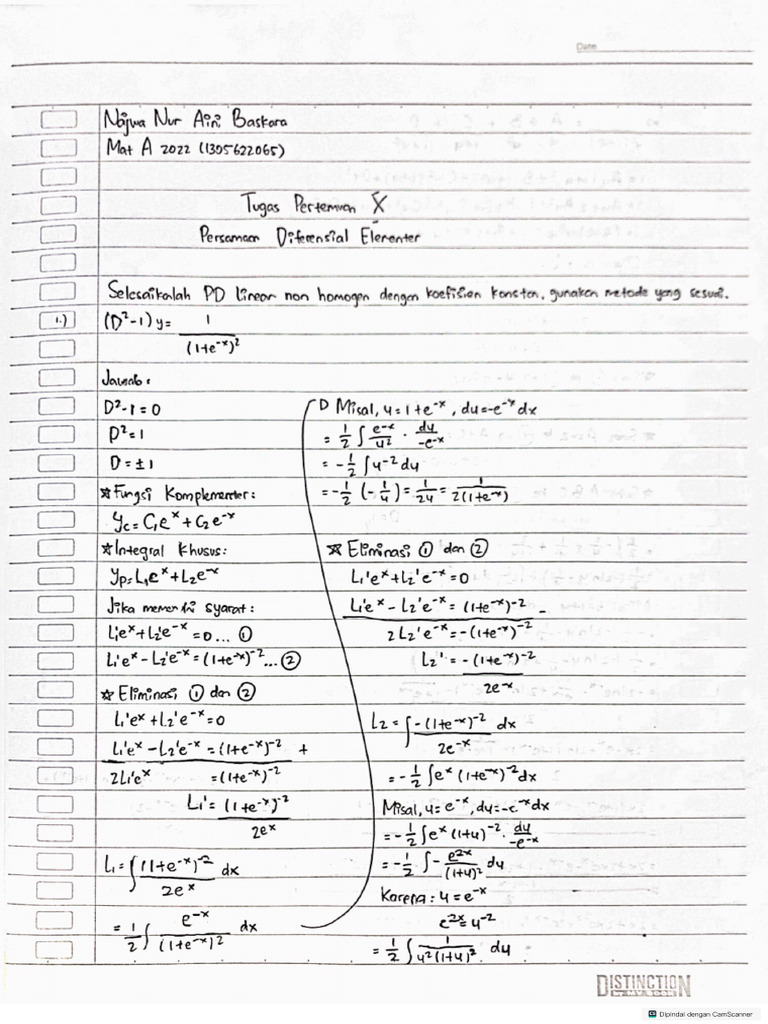 Date
Najwa Nur Aini Baskara
Mat A 2022 (1305622065)
Tugas Pertemuan X
Persamaan Diferensial Elementer
Selesaikalah PD linear non homogen dengan koefisien konstan, gunakan metode yang sesuai.
1.) (D²-1) y = 1/(1+e⁻ˣ)²
Jawab:
D²-1 = 0
D² = 1
D = ±1
☆ Fungsi Komplementer:
yc = C₁eˣ + C₂e⁻ˣ
☆ Integral Khusus:
yp = L₁eˣ + L₂e⁻ˣ
Jika memenhi syarat:
L₁'eˣ + L₂'e⁻ˣ = 0 ... ①
L₁'eˣ - L₂'e⁻ˣ = (1+e⁻ˣ)⁻² ... ②
☆ Eliminasi ① dan ②
L₁'eˣ + L₂'e⁻ˣ = 0
L₁'eˣ - L₂'e⁻ˣ = (1+e⁻ˣ)⁻² +
2L₁'eˣ = (1+e⁻ˣ)⁻²
L₁' = (1+e⁻ˣ)⁻²/2eˣ
L₁ = ∫ (1+e⁻ˣ)⁻²/2eˣ dx
= 1/2 ∫ e⁻ˣ/(1+e⁻ˣ)² dx
Misal, u = 1+e⁻ˣ, du = -e⁻ˣ dx
= 1/2 ∫ e⁻ˣ/u² · du/-e⁻ˣ
= -1/2 ∫ u⁻² du
= -1/2 (-1/u) = 1/2u = 1/2(1+e⁻ˣ)
☆ Eliminasi ① dan ②
L₁'eˣ + L₂'e⁻ˣ = 0
L₁'eˣ - L₂'e⁻ˣ = (1+e⁻ˣ)⁻² -
2L₂'e⁻ˣ = -(1+e⁻ˣ)⁻²
L₂' = -(1+e⁻ˣ)⁻²/2e⁻ˣ
L₂ = ∫ -(1+e⁻ˣ)⁻²/2e⁻ˣ dx
= -1/2 ∫ eˣ (1+e⁻ˣ)⁻² dx
Misal, u = e⁻ˣ, du = -e⁻ˣ dx
= -1/2 ∫ eˣ (1+u)⁻² · du/-e⁻ˣ
= -1/2 ∫ - e²ˣ/(1+u)² du
Karena: u = e⁻ˣ
e²ˣ = u⁻²
= 1/2 ∫ 1/u²(1+u)² du
DISTINCTION
BY MY BOOK
CS Dipindai dengan CamScanner